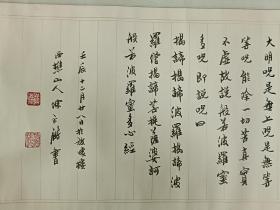 大明咒是無上咒是無等
等咒能除一切苦真實
不虛故說般若波羅蜜
多咒即說咒曰
揭諦揭諦波羅揭諦波
羅僧揭諦菩提薩婆訶
般若波羅蜜多心經
壬辰十二月廿八日於
山人
書